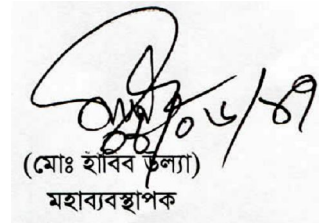 (মোঃ হাবিব উল্যা)
মহাব্যবস্থাপক